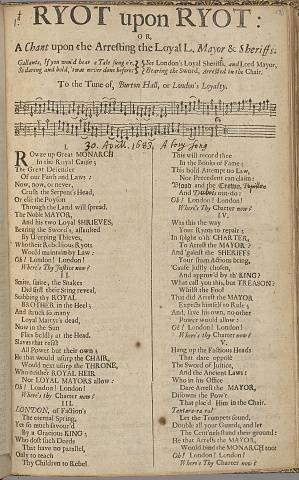 RYOT upon RYOT:
OR,
A Chant upon the Arresting the Loyal L. Mayor & Sheriffs.
Gallants, If you'd hear a Tale sung o'r,
So daring and bold, 'twas never done before:
See London's Loyal Sheriffs, and Lord Mayor,
Bearing the Sword, Arrested in the Chair.
To the Tune of, Burton Hall, or London's Loyalty.
30. April. 1683. A Tory Song
I.
ROwze up Great MONARCH
In the Royal Cause;
The Great Defender
Of our Faith and Laws:
Now, now, or never,
Crush the Serpent's Head,
Or else the Poyson
Through the Land will spread.
The Noble MAYOR,
And his two Loyal SHRIEVES,
Bearing the Sword's, assaulted
By Usurping Thieves,
Who their Rebellious Ryots
Would maintain by Law:
Oh! London! London!
Where's Thy Justice now?
II.
Sense, sense, the Snakes
Did first their Sting reveal,
Stabbing thy ROYAL
BROTHER in the Heel;
And struck so many
Loyal Martyrs dead,
Now in the Sun
Flies boldly at the Head.
Slaves that resist
All Power but their own;
He that would usurp the CHAIR,
Would next usurp the THRONE,
Who neither ROYAL HEIR
Nor LOYAL MAYORS allow:
Oh! London! London!
Where's thy Charter now?
III.
LONDON, of Faction's
The eternal Spring,
Yet so much favour'd
By a Gracious KING;
Who dost such Deeds
That have no parallel,
Only to teach
Thy Children to Rebel
This will record thee
In the Books of Fame;
This bold Attempt to Law,
Nor Precedent can claim:
Oh! London! London!
Where's thy Charter now?
IV.
Was this the way
Your Ryots to repair;
In spight o'th' CHARTER,
To Arrest the MAYOR?
And 'gainst the SHERIFFS
Your sham Actions bring,
'Cause justly chosen,
And approv'd by th' KING?
What call you this, but TREASON?
Whilst the Fool
That did Arrest the MAYOR
Expects himself to Rule;
And, save his own, no other
Power would allow:
Oh! London! London!
Where's thy Charter now?
V.
Hang up the Factious Heads
That dare oppose
The Sword of Justice,
And the Ancient Laws:
Who in his Office
Dare Arrest the MAYOR,
Disowns the Pow'r
That plac'd Him in the Chair.
Tantara-ra-ra!
Let the Trumpets sound,
Double all your Guards, and let
The Centinels stand their ground:
He that Arrests the MAYOR,
Would bind the MONARCH too:
Oh! London! London!
Where's thy Charter now?